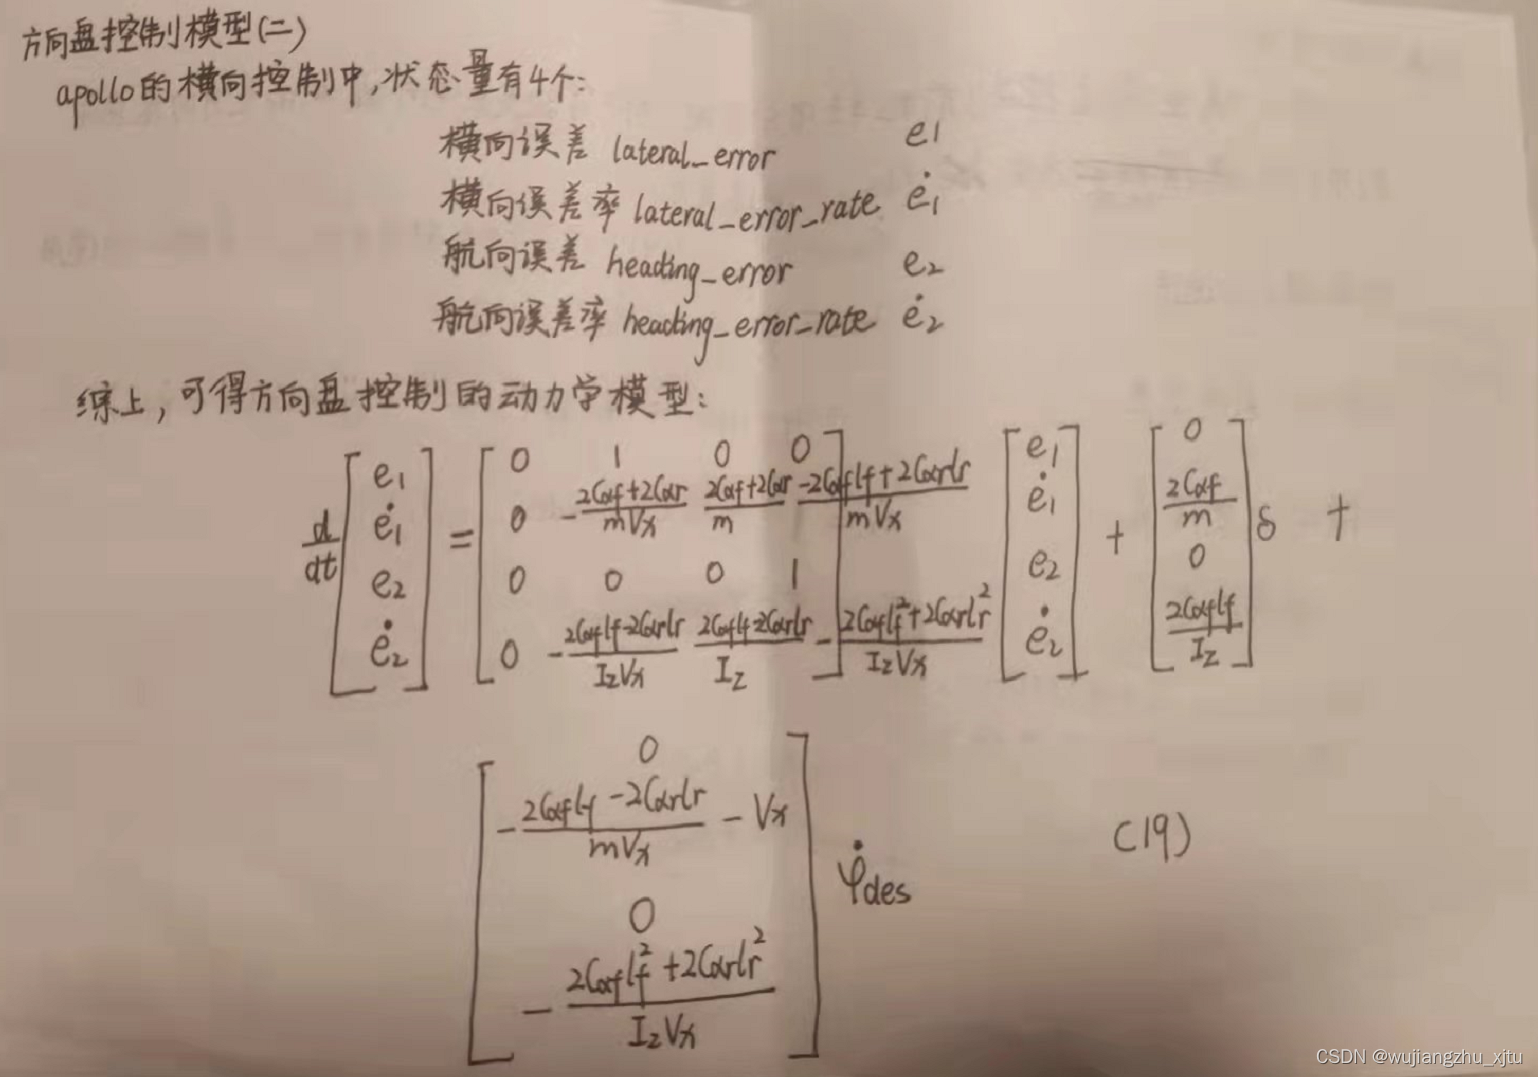 方向盘控制模型(二)
apollo的横向控制中,状态量有4个:
横向误差 lateral_error e1
横向误差率 lateral_error_rate ė1
航向误差 heading_error e2
航向误差率 heading_error_rate ė2
综上,可得方向盘控制的动力学模型:
d/dt [e1; ė1; e2; ė2] = [0 1 0 0; 0 -(2Cαf+2Cαr)/(mVx) (2Cαf+2Cαr)/m (-2Cαflf+2Cαrlr)/(mVx); 0 0 0 1; 0 -(2Cαflf-2Cαrlr)/(IzVx) (2Cαflf-2Cαrlr)/Iz -(2Cαflf²+2Cαrlr²)/(IzVx)] [e1; ė1; e2; ė2] + [0; 2Cαf/m; 0; 2Cαflf/Iz] δ +
[0; -(2Cαflf-2Cαrlr)/(mVx) - Vx; 0; -(2Cαflf²+2Cαrlr²)/(IzVx)] φ̇des (19)
CSDN @wujiangzhu_xjtu